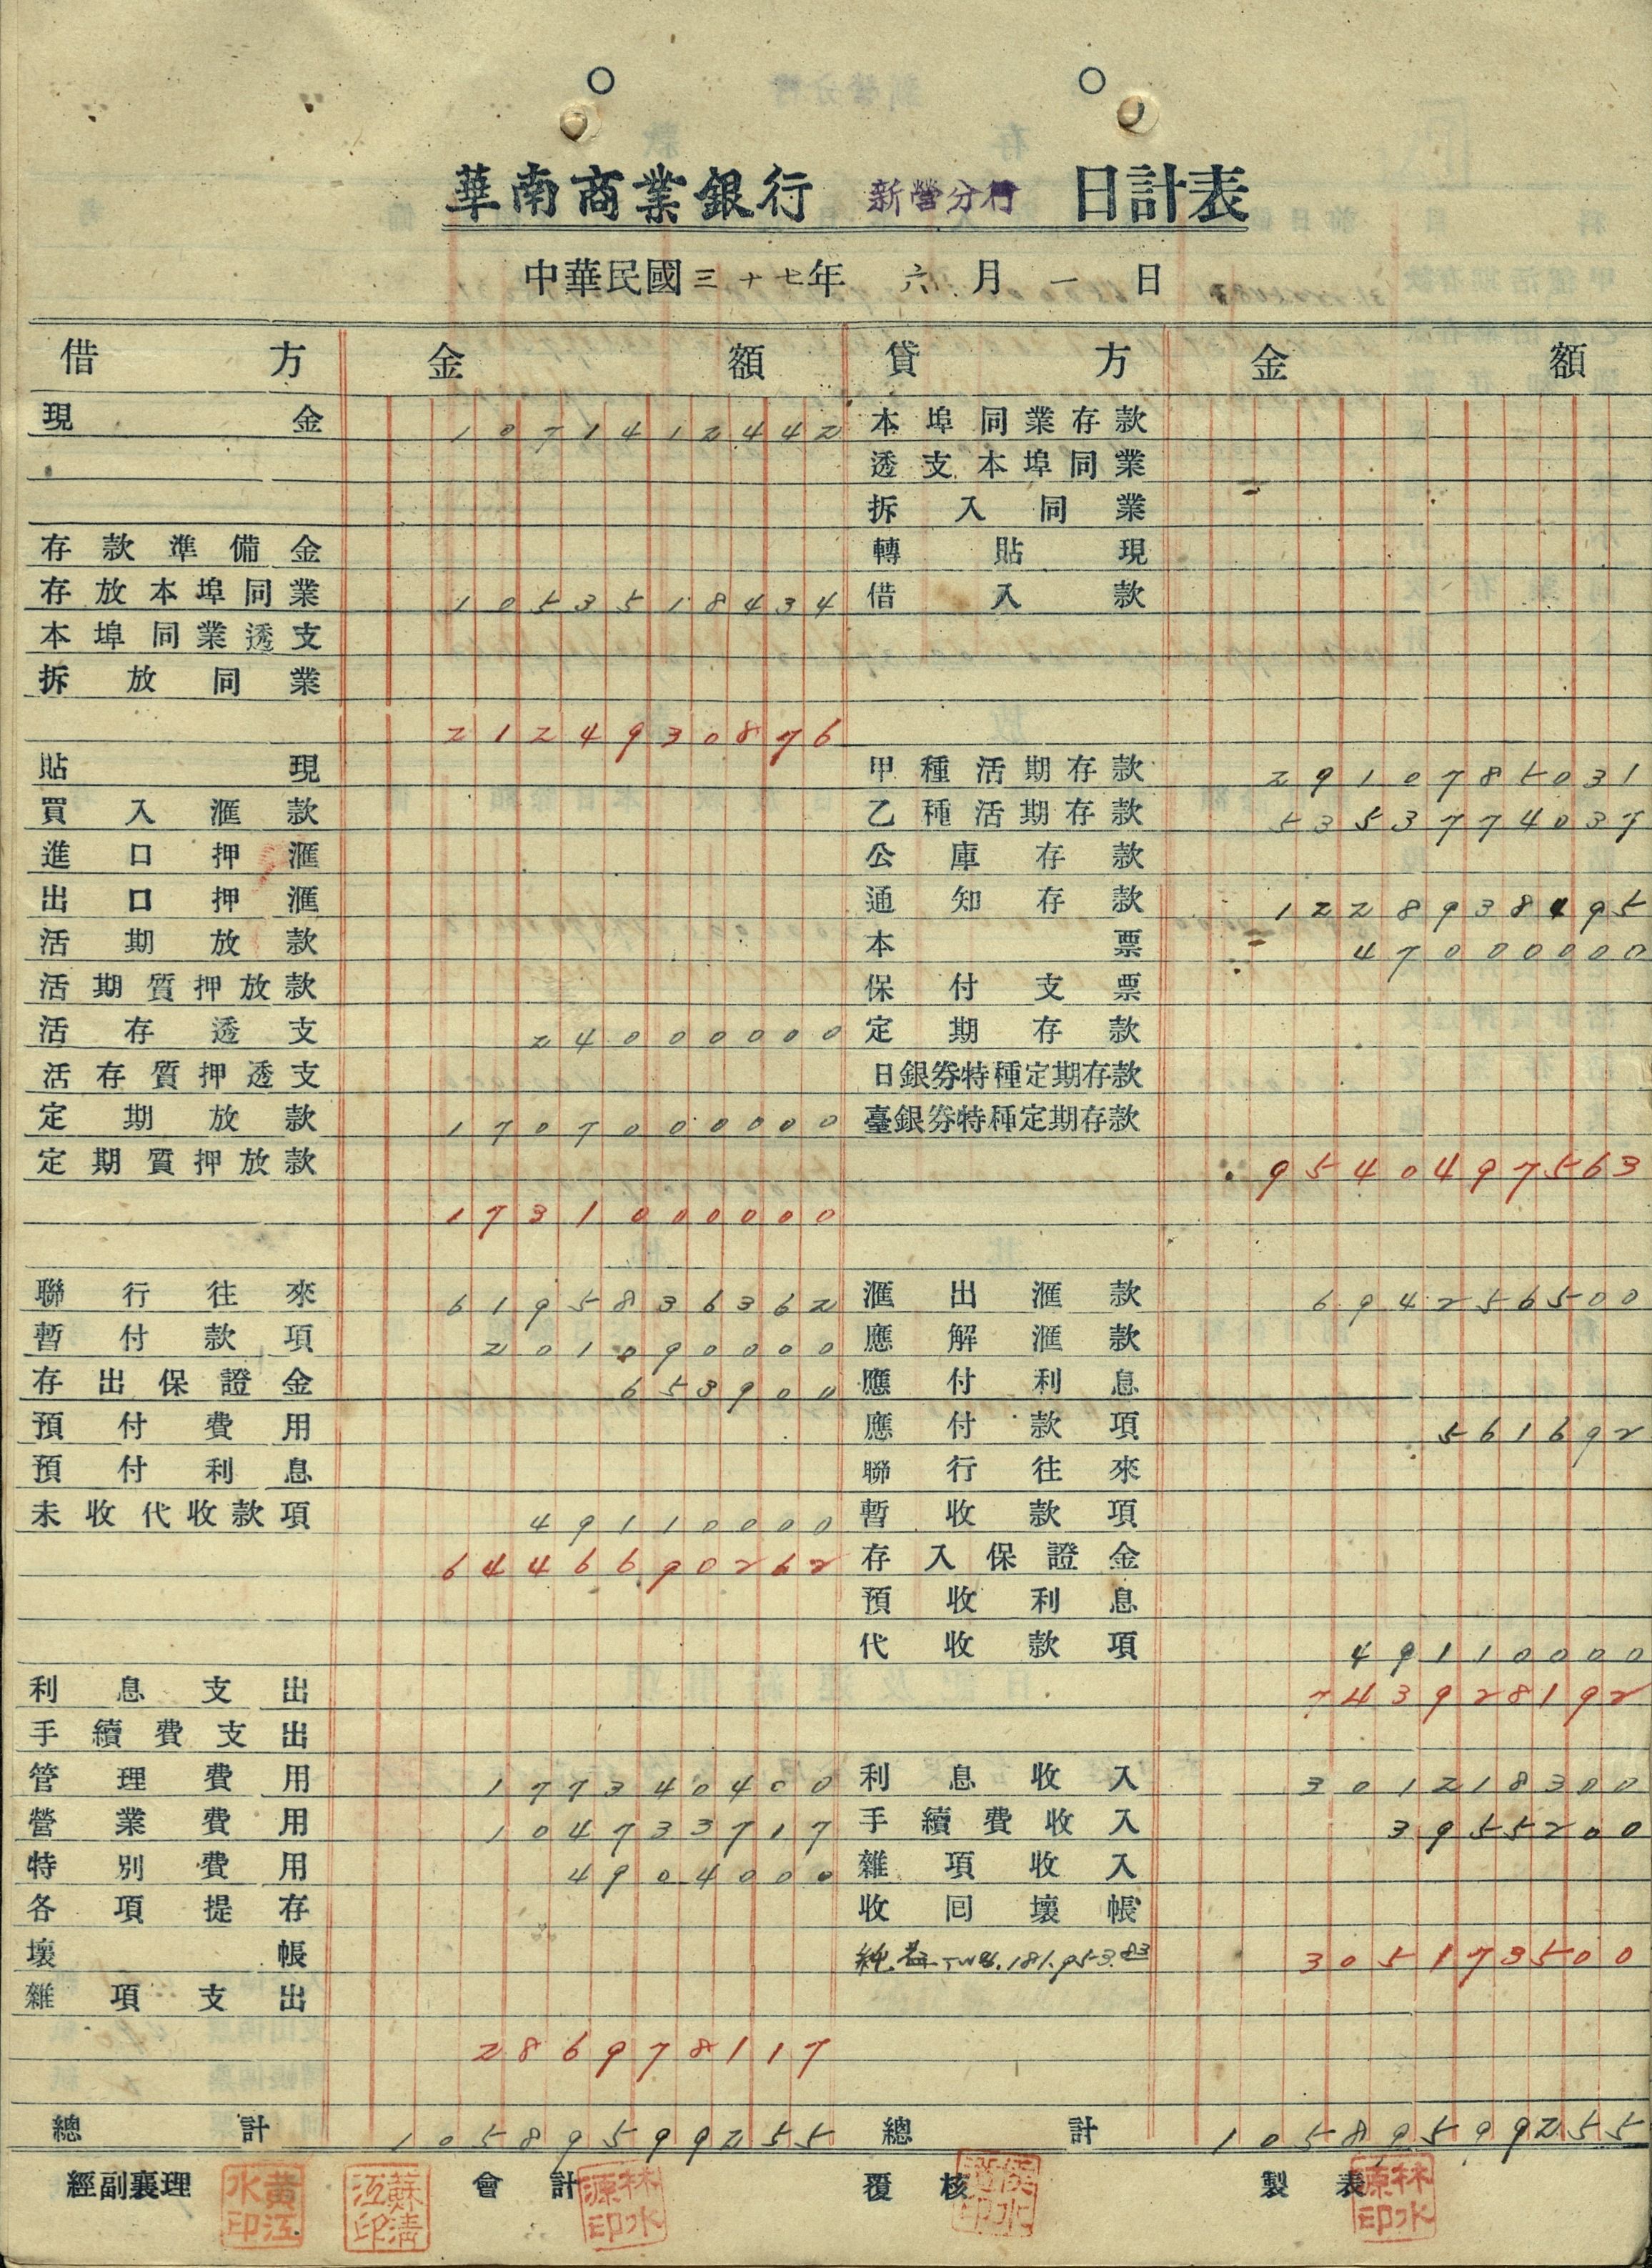 華南商業銀行 新營分行 日計表
中華民國三十七年 六月一日
借方 金額 貸方 金額
現金 1071412442 本埠同業存款
透支本埠同業
拆入同業
存款準備金 轉貼現
存放本埠同業 1053518434 借入款
本埠同業透支
拆放同業
2124930876
貼現 甲種活期存款 2910785031
買入滙款 乙種活期存款 5353774037
進口押滙 公庫存款
出口押滙 通知存款 1228938495
活期放款 本票 47000000
活期質押放款 保付支票
活存透支 24000000 定期存款
活存質押透支 日銀券特種定期存款
定期放款 1707000000 臺銀券特種定期存款
定期質押放款 9540497563
1731000000
聯行往來 6195836362 滙出滙款 694256500
暫付款項 201090000 應解滙款
存出保證金 653900 應付利息
預付費用 應付款項 561692
預付利息 聯行往來
未收代收款項 49110000 暫收款項
6446690262 存入保證金
預收利息
代收款項 49110000
利息支出 743928192
手續費支出
管理費用 177340400 利息收入 301218300
營業費用 104733717 手續費收入 3955200
特別費用 4904000 雜項收入
各項提存 收囘壞帳
壞帳 純益 TW$.181.953.83 305173500
雜項支出
286978117
總計 10589599255 總計 10589599255
經副襄理 黃江水印 蘇清江印 會計 林水源印 覆核 製表 林水源印